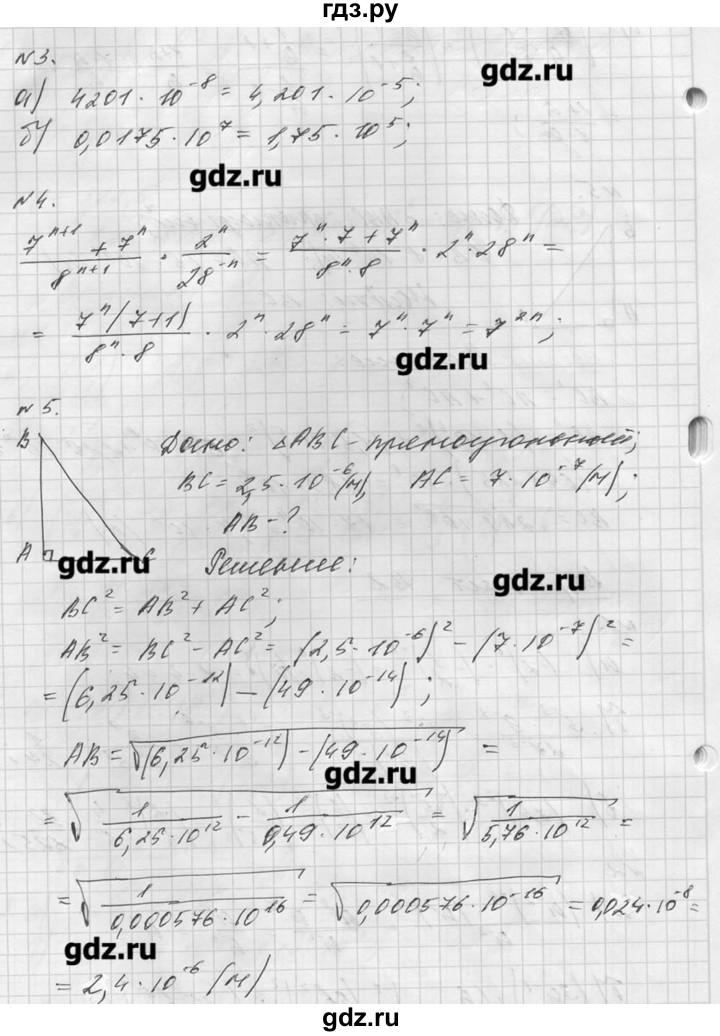 гдз.ру
№3.
gdz.ru
а) 4201 · 10⁻⁸ = 4,201 · 10⁻⁵;
б) 0,0175 · 10⁷ = 1,75 · 10⁵;
gdz.ru
№4.
(7ⁿ⁺¹ + 7ⁿ)/(8ⁿ⁺¹) · 2ⁿ/(28⁻ⁿ) = (7ⁿ · 7 + 7ⁿ)/(8ⁿ · 8) · 2ⁿ · 28ⁿ =
= 7ⁿ(7+1)/(8ⁿ · 8) · 2ⁿ · 28ⁿ = 7ⁿ · 7ⁿ = 7²ⁿ;
gdz.ru
№5.
B
Дано: △ABC – прямоугольный;
BC = 2,5 · 10⁻⁶ (м), AC = 7 · 10⁻⁷ (м);
AB – ?
A C
gdz.ru
Решение:
gdz.ru
BC² = AB² + AC²;
AB² = BC² – AC² = (2,5 · 10⁻⁶)² – (7 · 10⁻⁷)² =
= (6,25 · 10⁻¹²) – (49 · 10⁻¹⁴);
AB = √((6,25 · 10⁻¹²) – (49 · 10⁻¹⁴)) =
gdz.ru
= √(1/(6,25 · 10¹²) – 1/(0,49 · 10¹²)) = √(1/(5,76 · 10¹²)) =
= √(1/(0,000576 · 10¹⁶)) = √(0,000576 · 10⁻¹⁶) = 0,024 · 10⁻⁸ =
gdz.ru
= 2,4 · 10⁻⁶ (м)
gdz.ru